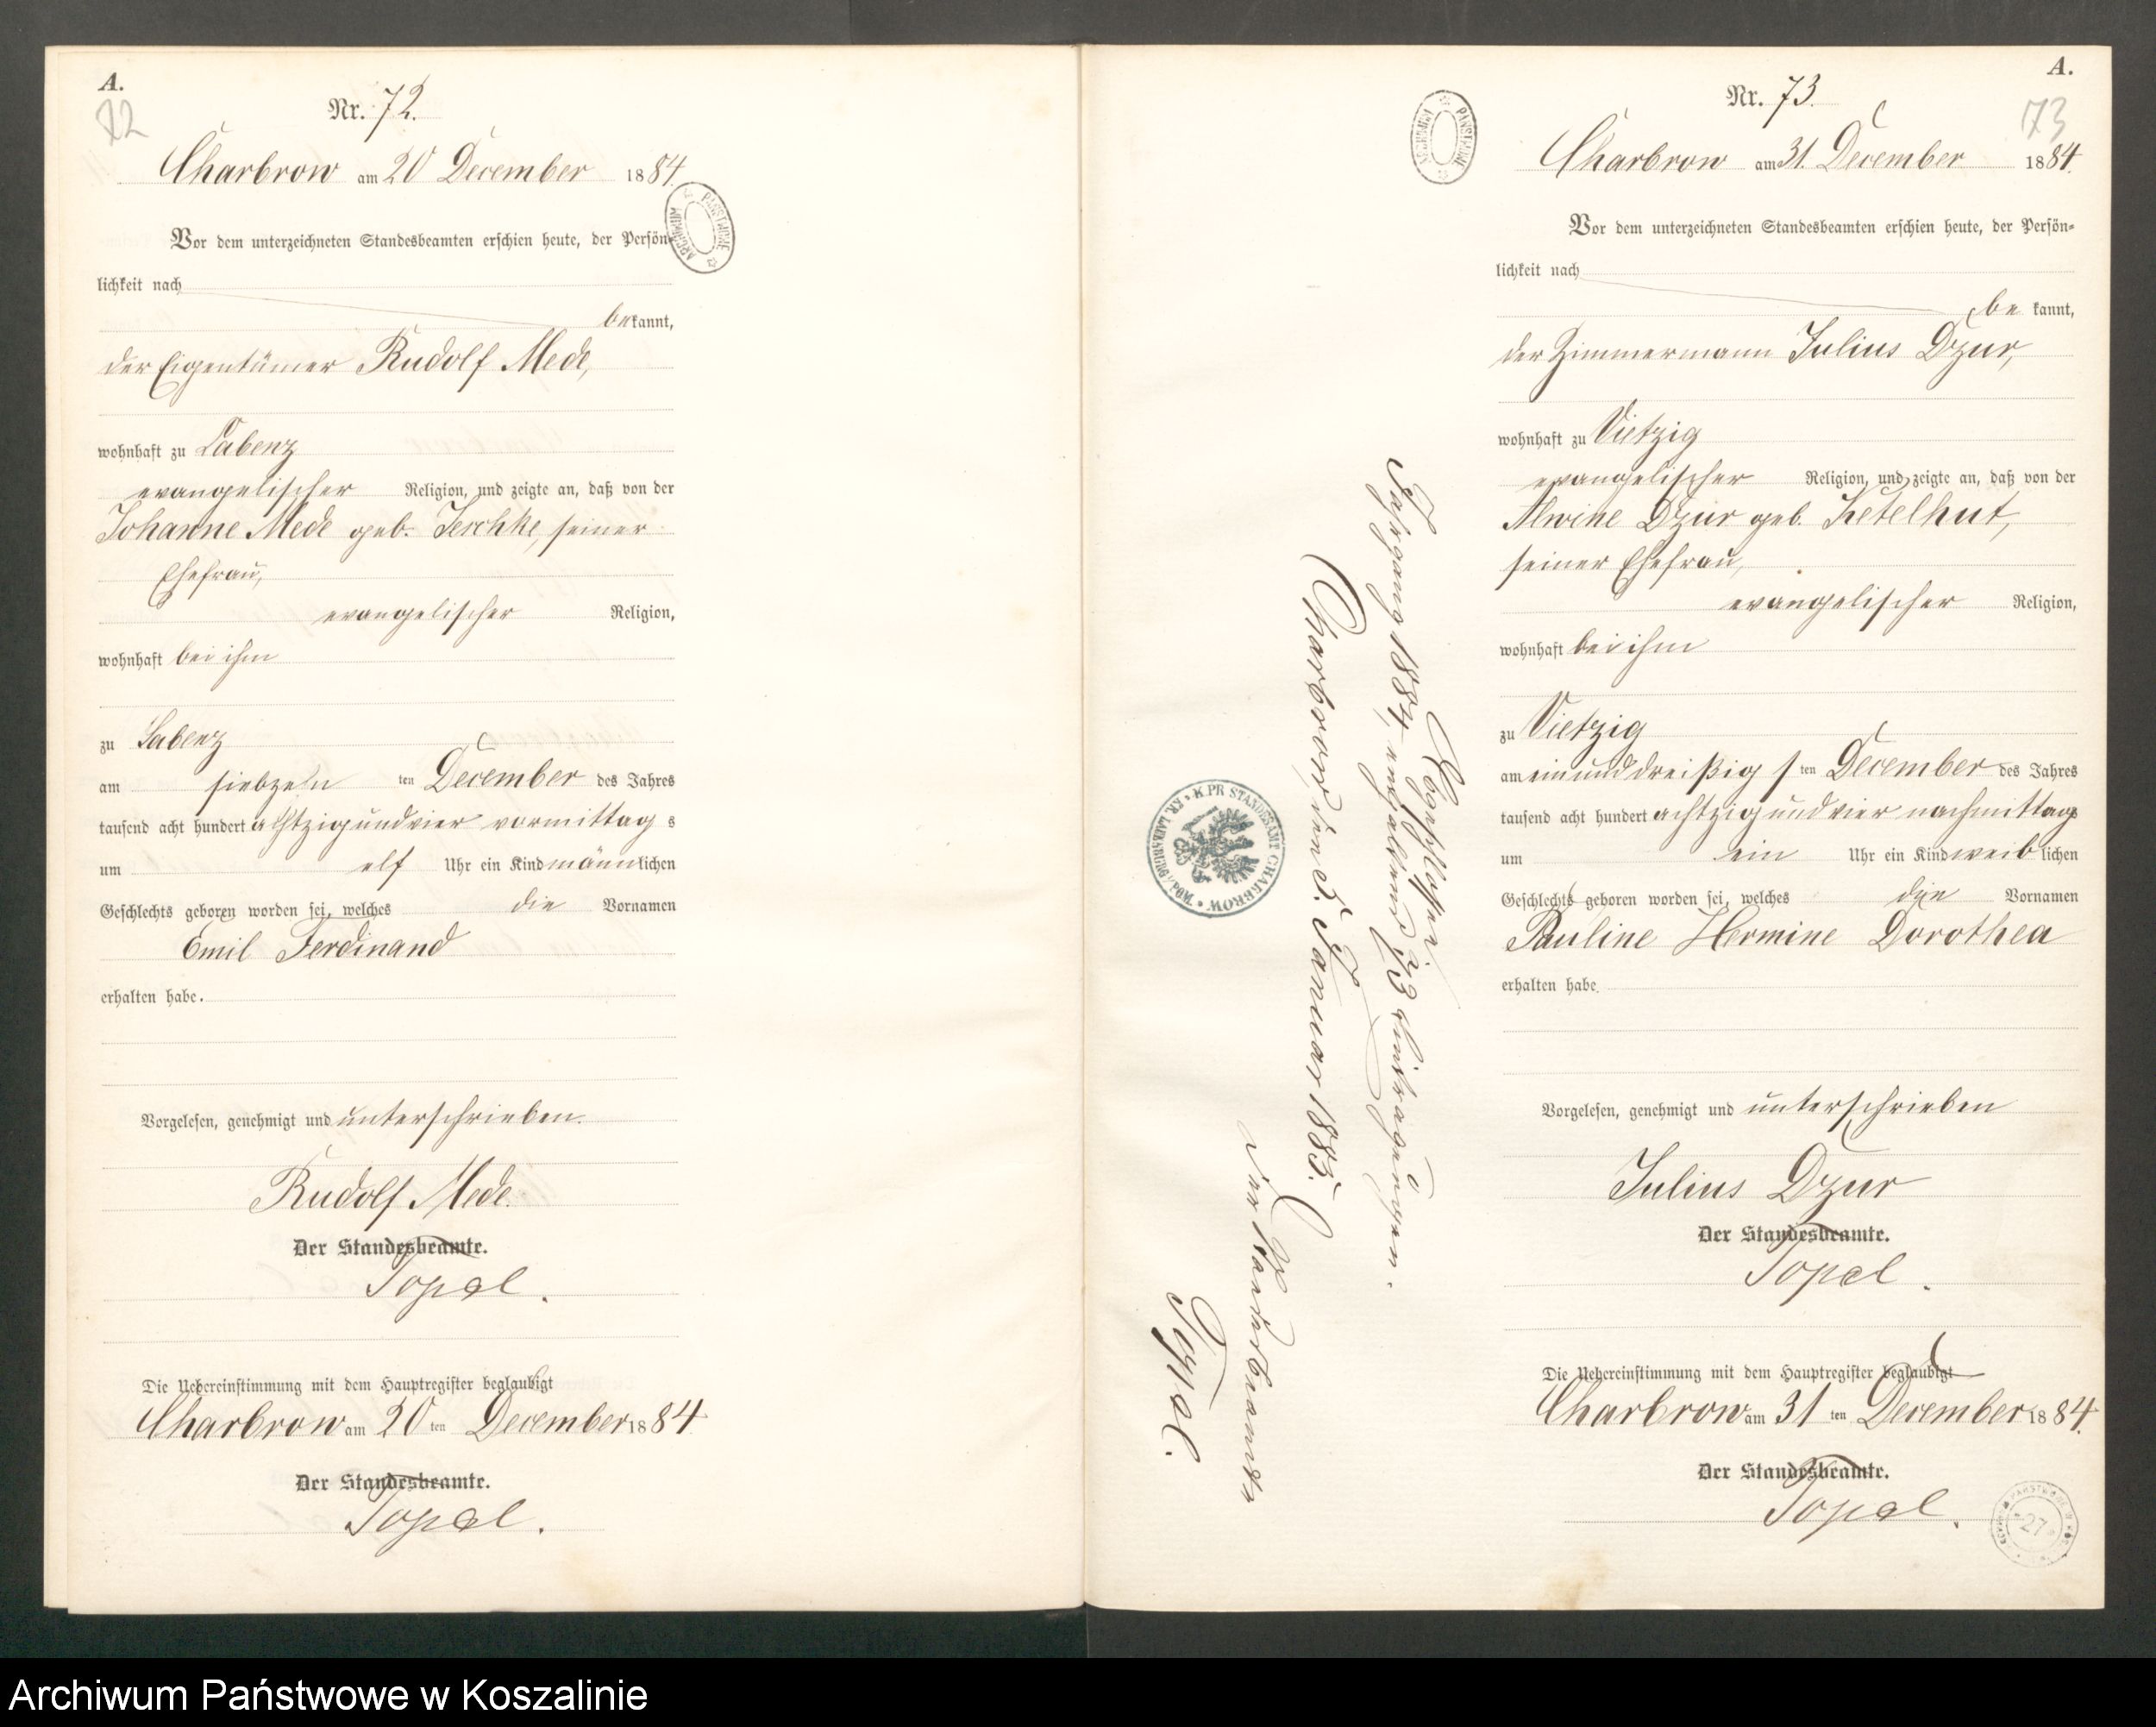 A.
72
Nr. 72.
Charbrow am 20 December 1884.
Vor dem unterzeichneten Standesbeamten erschien heute, der Persön-
lichkeit nach
bekannt,
der Eigentümer Rudolf Mede,
wohnhaft zu Labenz
evangelischer Religion, und zeigte an, daß von der
Johanne Mede geb. Jeschke, seiner
Ehefrau,
evangelischer Religion,
wohnhaft bei ihm
zu Labenz
am siebzehn ten December des Jahres
tausend acht hundert achtzig und vier vormittags
um elf Uhr ein Kind männlichen
Geschlechts geboren worden sei, welches die Vornamen
Emil Ferdinand
erhalten habe.
Vorgelesen, genehmigt und unterschrieben.
Rudolf Mede.
Der Standesbeamte.
Topel.
Die Uebereinstimmung mit dem Hauptregister beglaubigt
Charbrow am 20 ten December 1884.
Der Standesbeamte.
Topel.
ARCHIWUM PAŃSTWOWE
ARCHIWUM PAŃSTWOWE
Abgeschlossen.
Jahrgang 1884, enthaltend 73 Eintragungen.
Charbrow, den 3. Januar 1885.
Der Standesbeamte
Topel.
K. PR STANDESAMT CHARBROW
A.
73
Nr. 73.
Charbrow am 31. December 1884.
Vor dem unterzeichneten Standesbeamten erschien heute, der Persön-
lichkeit nach
bekannt,
der Zimmermann Julius Dzur,
wohnhaft zu Vietzig
evangelischer Religion, und zeigte an, daß von der
Alwine Dzur geb. Ketelhut,
seiner Ehefrau,
evangelischer Religion,
wohnhaft bei ihm
zu Vietzig
am einunddreißigsten December des Jahres
tausend acht hundert achtzig und vier nachmittags
um ein Uhr ein Kind weiblichen
Geschlechts geboren worden sei, welches die Vornamen
Pauline Hermine Dorothea
erhalten habe.
Vorgelesen, genehmigt und unterschrieben
Julius Dzur
Der Standesbeamte.
Topel.
Die Uebereinstimmung mit dem Hauptregister beglaubigt
Charbrow am 31 ten December 1884.
Der Standesbeamte.
Topel.
27
Archiwum Państwowe w Koszalinie